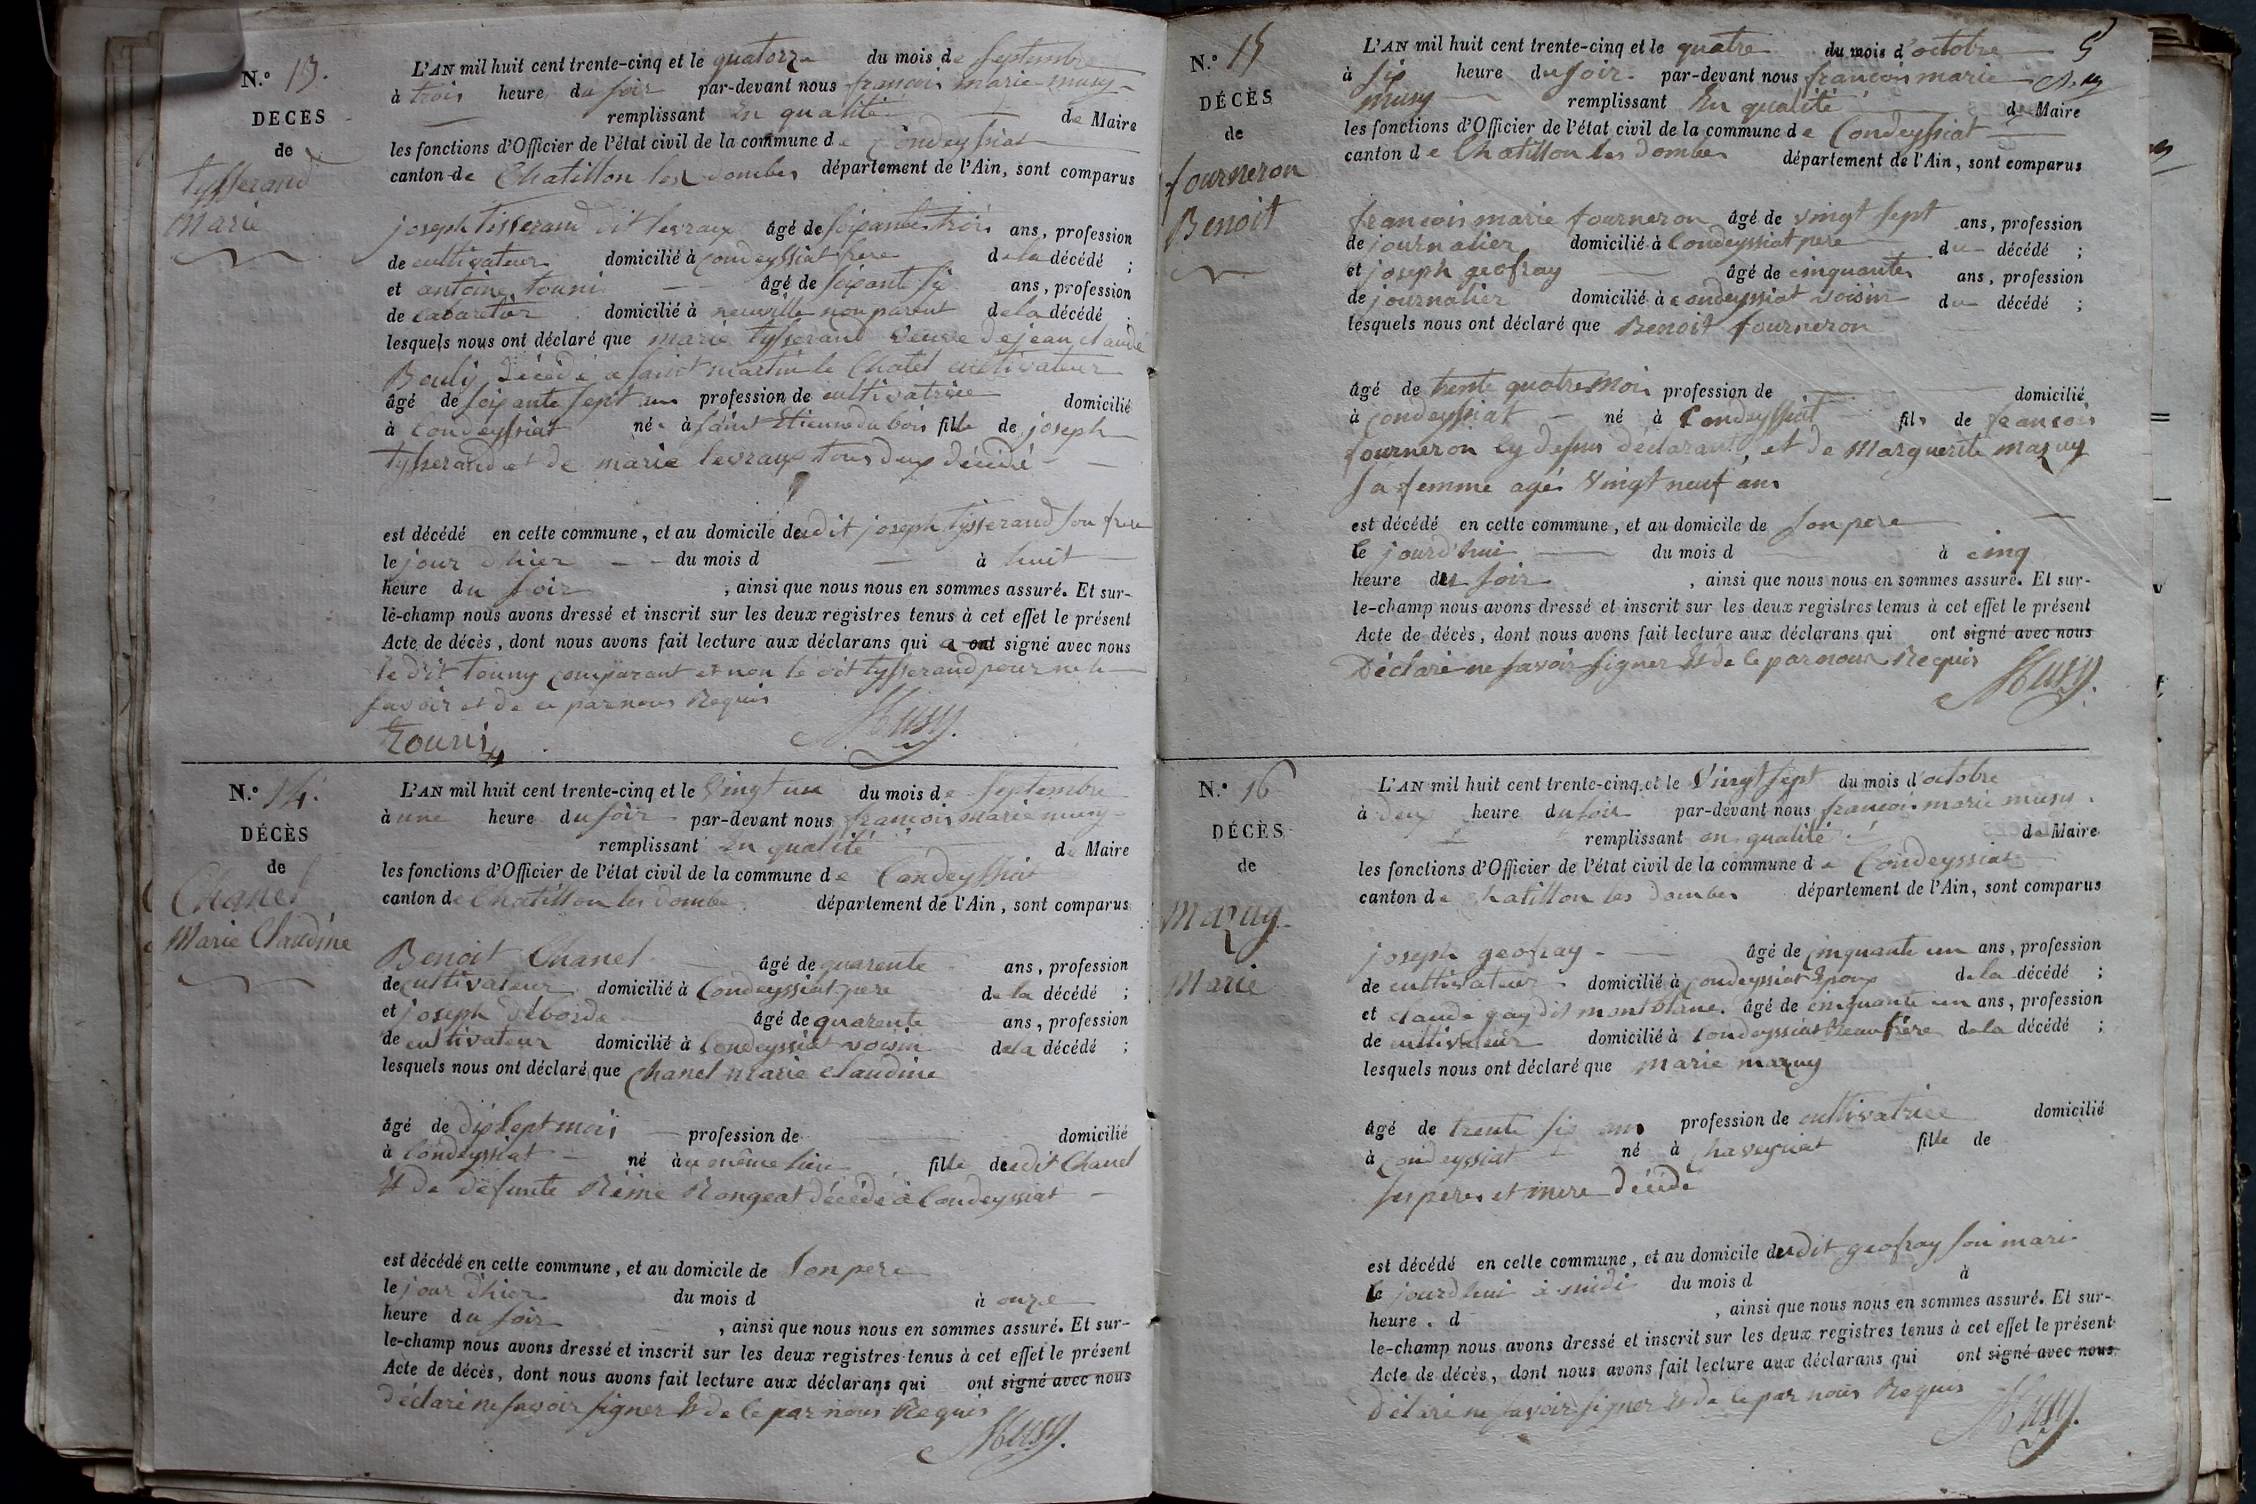 N.° 13.
DECES
de
tysserand
Marie
L'AN mil huit cent trente-cinq et le quatorze du mois de Septembre
à trois heure du soir par-devant nous françois marie musy
remplissant En qualité de Maire
les fonctions d'Officier de l'état civil de la commune de Condeyssiat
canton de Chatillon les dombes département de l'Ain, sont comparus
joseph tisserand dit levraux âgé de soixante trois ans, profession
de cultivateur domicilié à Condeyssiat frere de la décédé ;
et antoine touni âgé de soixante six ans, profession
de cabaretier domicilié à neuville non parent de la décédé ;
lesquels nous ont déclaré que marie tysserand veuve de jean claude
Bouly décédé a saint martin le Chatel cultivateur
âgé de soixante sept ans profession de cultivatrice domicilié
à condeyssiat née à saint Etienne du bois fille de joseph
tysserand et de marie levraux tous deux décédé
est décédé en cette commune, et au domicile dudit joseph tysserand son frere
le jour d'hier du mois d à huit
heure du soir , ainsi que nous nous en sommes assuré. Et sur-
le-champ nous avons dressé et inscrit sur les deux registres tenus à cet effet le présent
Acte de décès, dont nous avons fait lecture aux déclarans qui a ont signé avec nous
le dit touny comparant et non le dit tysserand pour ne le
savoir et de ce par nous Requis
touni Musy
N.° 14.
DÉCÈS
de
Chanel
Marie Claudine
L'AN mil huit cent trente-cinq et le vingt un du mois de Septembre
à une heure du soir par-devant nous françois marie musy
remplissant En qualité de Maire
les fonctions d'Officier de l'état civil de la commune de Condeyssiat
canton de Chatillon les dombes département de l'Ain, sont comparus
Benoit Chanel âgé de quarente ans, profession
de cultivateur domicilié à Condeyssiat pere de la décédé ;
et joseph deborde âgé de quarente ans, profession
de cultivateur domicilié à Condeyssiat voisin de la décédé ;
lesquels nous ont déclaré que Chanel marie claudine
âgé de dix sept mois profession de domicilié
à Condeyssiat né au même lieu fille dudit Chanel
Et de défunte Reine Rongeat décédé à Condeyssiat
est décédé en cette commune, et au domicile de son pere
le jour d'hier du mois d à onze
heure du soir , ainsi que nous nous en sommes assuré. Et sur-
le-champ nous avons dressé et inscrit sur les deux registres tenus à cet effet le présent
Acte de décès, dont nous avons fait lecture aux déclarans qui ont signé avec nous
déclaré ne savoir signer Et de ce par nous Requis
Musy
5
N.° 15
DÉCÈS
de
fourneron
Benoit
L'AN mil huit cent trente-cinq et le quatre du mois d'octobre
à six heure du soir par-devant nous françois marie
musy remplissant En qualité de Maire
les fonctions d'Officier de l'état civil de la commune de Condeyssiat
canton de Chatillon les dombes département de l'Ain, sont comparus
françois marie fourneron âgé de vingt sept ans, profession
de journalier domicilié à Condeyssiat pere du décédé ;
et joseph geofray âgé de cinquante ans, profession
de journalier domicilié à condeyssiat voisin du décédé ;
lesquels nous ont déclaré que Benoit fourneron
âgé de trente quatre mois profession de domicilié
à condeyssiat né à Condeyssiat fils de françois
fourneron cy dessus déclarant, et de Marguerite mazuy
sa femme agée vingt neuf ans
est décédé en cette commune, et au domicile de son pere
le jourd'hui du mois d à cinq
heure du soir , ainsi que nous nous en sommes assuré. Et sur-
le-champ nous avons dressé et inscrit sur les deux registres tenus à cet effet le présent
Acte de décès, dont nous avons fait lecture aux déclarans qui ont signé avec nous
Déclaré ne savoir signer Et de ce par nous Requis
Musy
N.° 16
DÉCÈS
de
Mazuy
Marie
L'AN mil huit cent trente-cinq et le vingt sept du mois d'octobre
à deux heure du soir par-devant nous françois marie musy
remplissant en qualité de Maire
les fonctions d'Officier de l'état civil de la commune de Condeyssiat
canton de chatillon les dombes département de l'Ain, sont comparus
joseph geofray âgé de cinquante un ans, profession
de cultivateur domicilié à Condeyssiat Epoux de la décédé ;
et claude gay dit montblanc âgé de cinquante un ans, profession
de cultivateur domicilié à Condeyssiat Beaufrère de la décédé ;
lesquels nous ont déclaré que marie mazuy
âgé de trente six ans profession de cultivatrice domicilié
à condeyssiat né à chaveyriat fille de
ses peres et mere décédé
est décédé en cette commune, et au domicile dudit geofray son mari
le jourd'hui à midi du mois d à
heure . d , ainsi que nous nous en sommes assuré. Et sur-
le-champ nous avons dressé et inscrit sur les deux registres tenus à cet effet le présent
Acte de décès, dont nous avons fait lecture aux déclarans qui ont signé avec nous
Déclaré ne savoir signer Et de ce par nous Requis
Musy